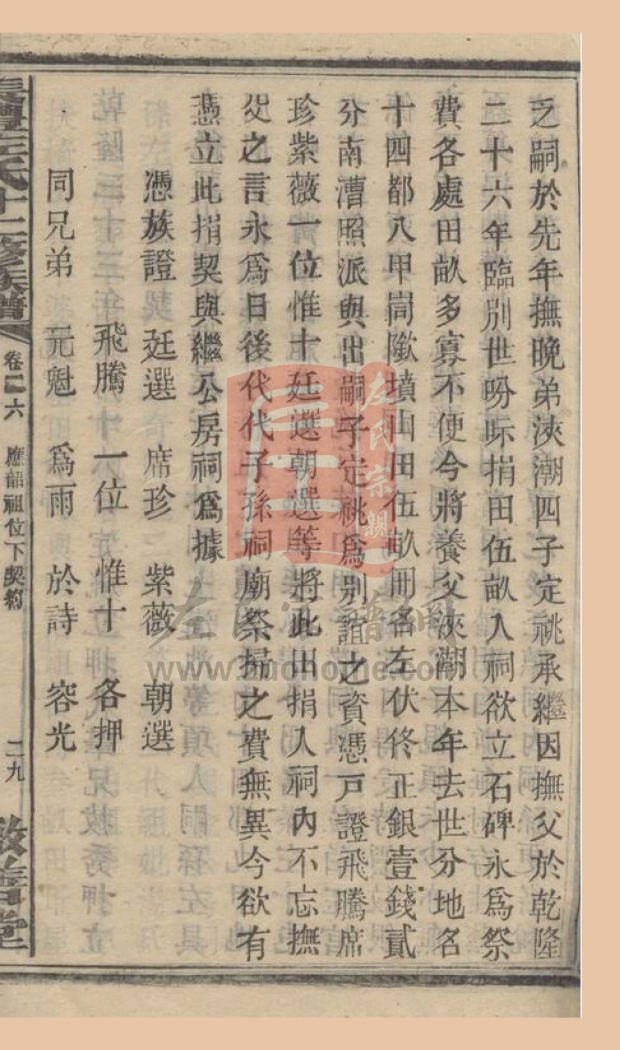 乏嗣於先年撫晚弟浹潮四子定祧承繼因撫父於乾隆
二十六年臨別世吩咶捐田伍畝入祠欲立石碑永爲祭
費各處田畝多寡不便今將養父浹潮本年去世分地名
十四都八甲峝隞墳山田伍畝冊名左伏佟正銀壹錢貳
分南漕照派與出嗣子定祧爲別誼之資憑戸證飛騰席
珍紫薇一位惟十廷選朝選等將此田捐入祠內不忘撫
父之言永爲日後代代子孫祠廟祭掃之費無異今欲有
憑立此捐契與繼公房祠爲據
憑族證 廷選 席珍 紫薇 朝選
飛騰 一位 惟十 各押
同兄弟 元魁 爲雨 於詩 容光
左氏十二修族譜
卷二六 應韶祖位下契約 二九
敦善堂
左氏宗親
左氏家譜網
www.zuohome.com